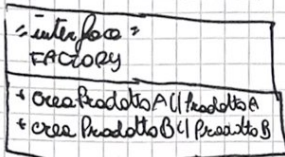 "interface"
FACTORY
+ creaProdottoA()|ProdottoA
+ creaProdottoB()|ProdottoB